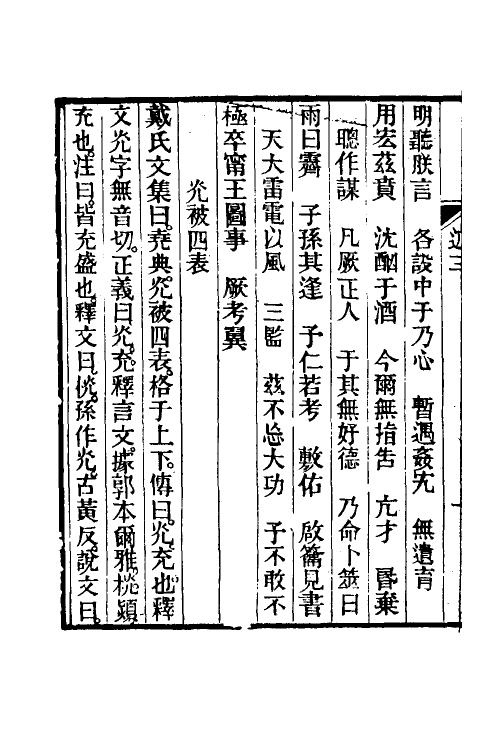 明聽朕言　各設中于乃心　暫遇姦宄　無遺育
用宏茲賁　沈酗于酒　今爾無指告　亢才　昬棄
聰作謀　凡厥正人　于其無好德　乃命卜筮曰
雨曰霽　子孫其逢　予仁若考　敷佑　啟籥見書
天大雷電以風　三監　茲不忘大功　予不敢不
極卒甯王圖事　厥考翼
灮被四表
戴氏文集曰。堯典。灮被四表。格于上下。傳曰。灮。充也釋
文灮字無音切。正義曰灮。充。釋言文。據郭本爾雅。桄潁
充也。注曰。皆充盛也。釋文曰。桄。孫作灮。古黃反。說文曰。